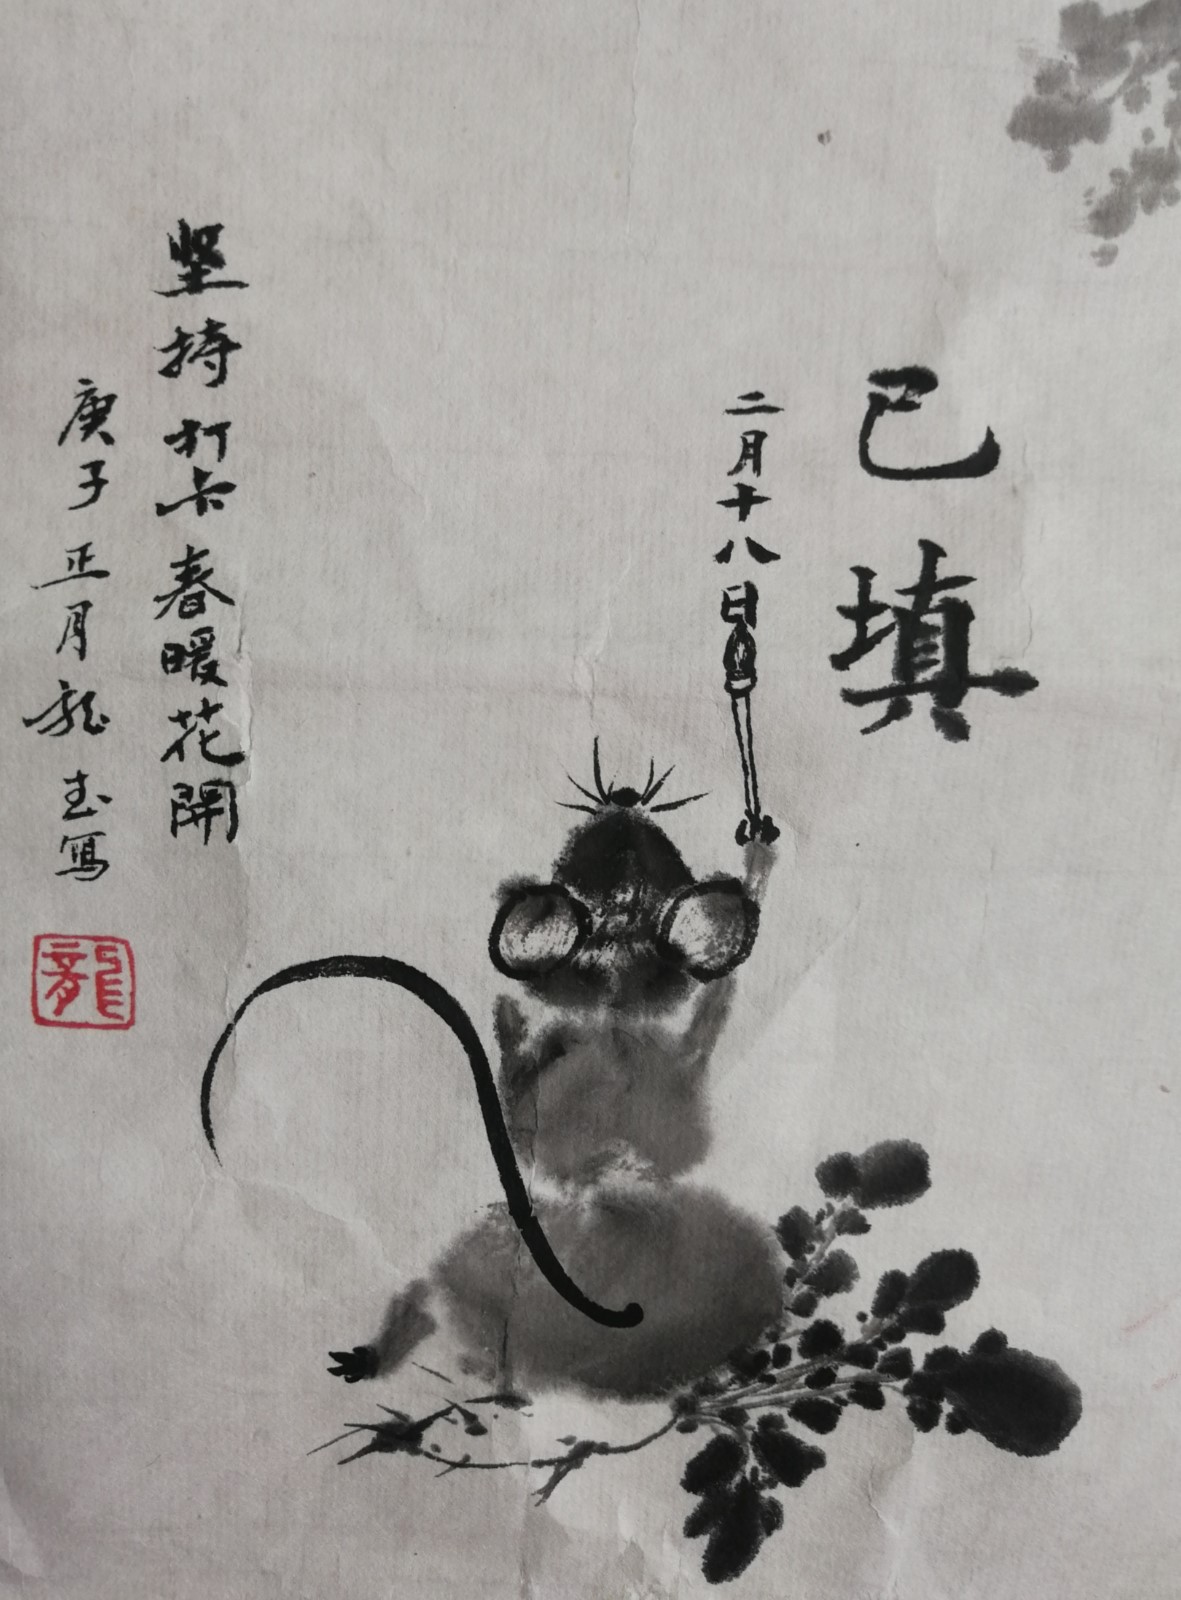 已填
二月十八日
坚持打卡春暖花開
庚子正月龙玉写
龍